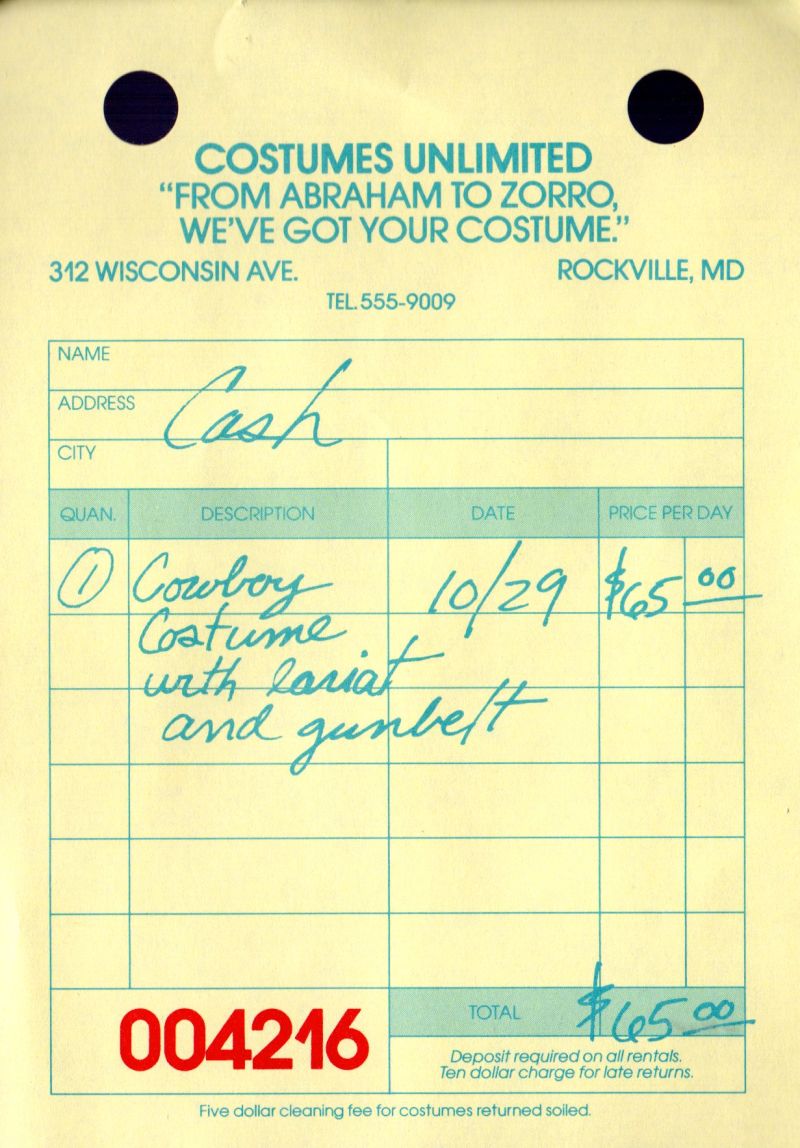 COSTUMES UNLIMITED
“FROM ABRAHAM TO ZORRO,
WE’VE GOT YOUR COSTUME.”
312 WISCONSIN AVE. ROCKVILLE, MD
TEL. 555-9009
NAME
ADDRESS
Cash
CITY
QUAN. DESCRIPTION DATE PRICE PER DAY
1 Cowboy 10/29 $65 00
Costume
with lariat
and gunbelt
004216
TOTAL $65 00
Deposit required on all rentals.
Ten dollar charge for late returns.
Five dollar cleaning fee for costumes returned soiled.